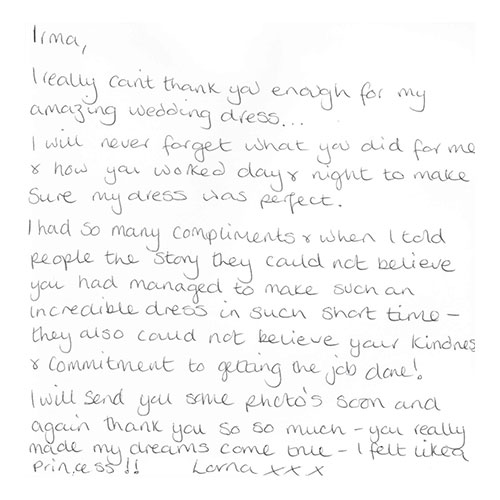 Irma,
I really can't thank you enough for my
amazing wedding dress...
I will never forget what you did for me
& how you worked day & night to make
Sure my dress was perfect.
I had so many compliments & when I told
people the story they could not believe
you had managed to make such an
incredible dress in such short time –
they also could not believe your kindness
& commitment to getting the job done!
I will send you some photo's soon and
again thank you so so much – you really
made my dreams come true – I felt like a
Princess!! Lorna x x x